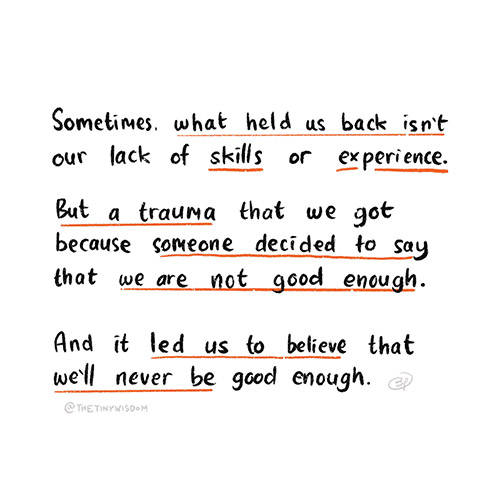 Sometimes, what held us back isn't
our lack of skills or experience.
But a trauma that we got
because someone decided to say
that we are not good enough.
And it led us to believe that
we'll never be good enough.
@THETINYWISDOM